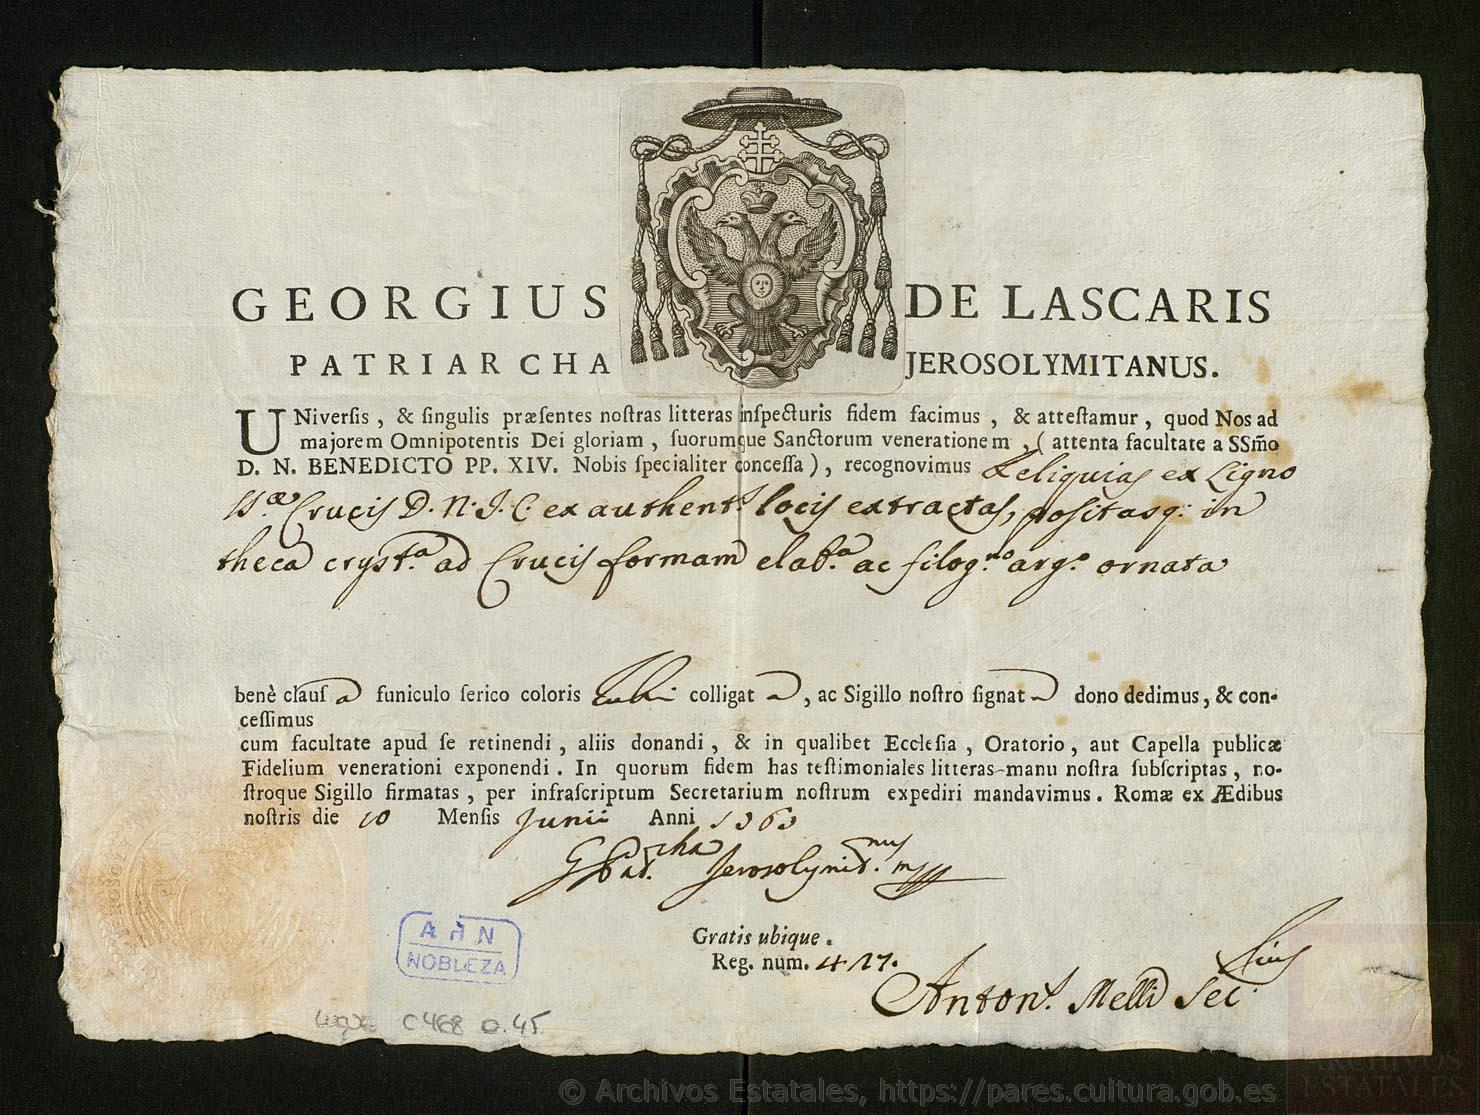 GEORGIUS DE LASCARIS
PATRIARCHA JEROSOLYMITANUS.
UNiverſis, & ſingulis præſentes noſtras litteras inſpecturis fidem facimus, & atteſtamur, quod Nos ad
majorem Omnipotentis Dei gloriam, ſuorumque Sanctorum venerationem, (attenta facultate a SSm̃o
D. N. BENEDICTO PP. XIV. Nobis ſpecialiter conceſſa), recognovimus Reliquias ex Ligno
SSæ Crucis D. N. J. C. ex authent.s locis extractas, positasq; in
theca cryst.a ad Crucis formam elab.a ac filog.no arg.o ornata
benè clauſa funiculo ſerico coloris rubri colligata, ac Sigillo noſtro ſignata dono dedimus, & con-
ceſſimus
cum facultate apud ſe retinendi, aliis donandi, & in qualibet Eccleſia, Oratorio, aut Capella publicæ
Fidelium venerationi exponendi. In quorum fidem has teſtimoniales litteras manu noſtra ſubſcriptas, no-
ſtroque Sigillo firmatas, per infraſcriptum Secretarium noſtrum expediri mandavimus. Romæ ex Ædibus
noſtris die 10 Menſis Junii Anni
G Pat.rcha Jerosolymit.nus
Gratis ubique.
Reg. num. 417.
Anton.s Melli Sec
AHN
NOBLEZA
LUQUE C468 D.45
© Archivos Estatales, https://pares.cultura.gob.es
ARCHIVOS
ESTATALES